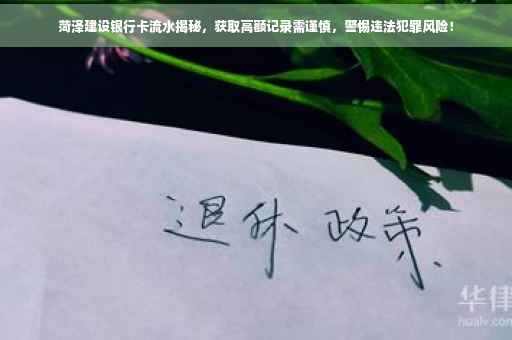 菏泽建设银行卡流水揭秘，获取高额记录需谨慎，警惕违法犯罪风险！
退休 政策
华律
hualv.com